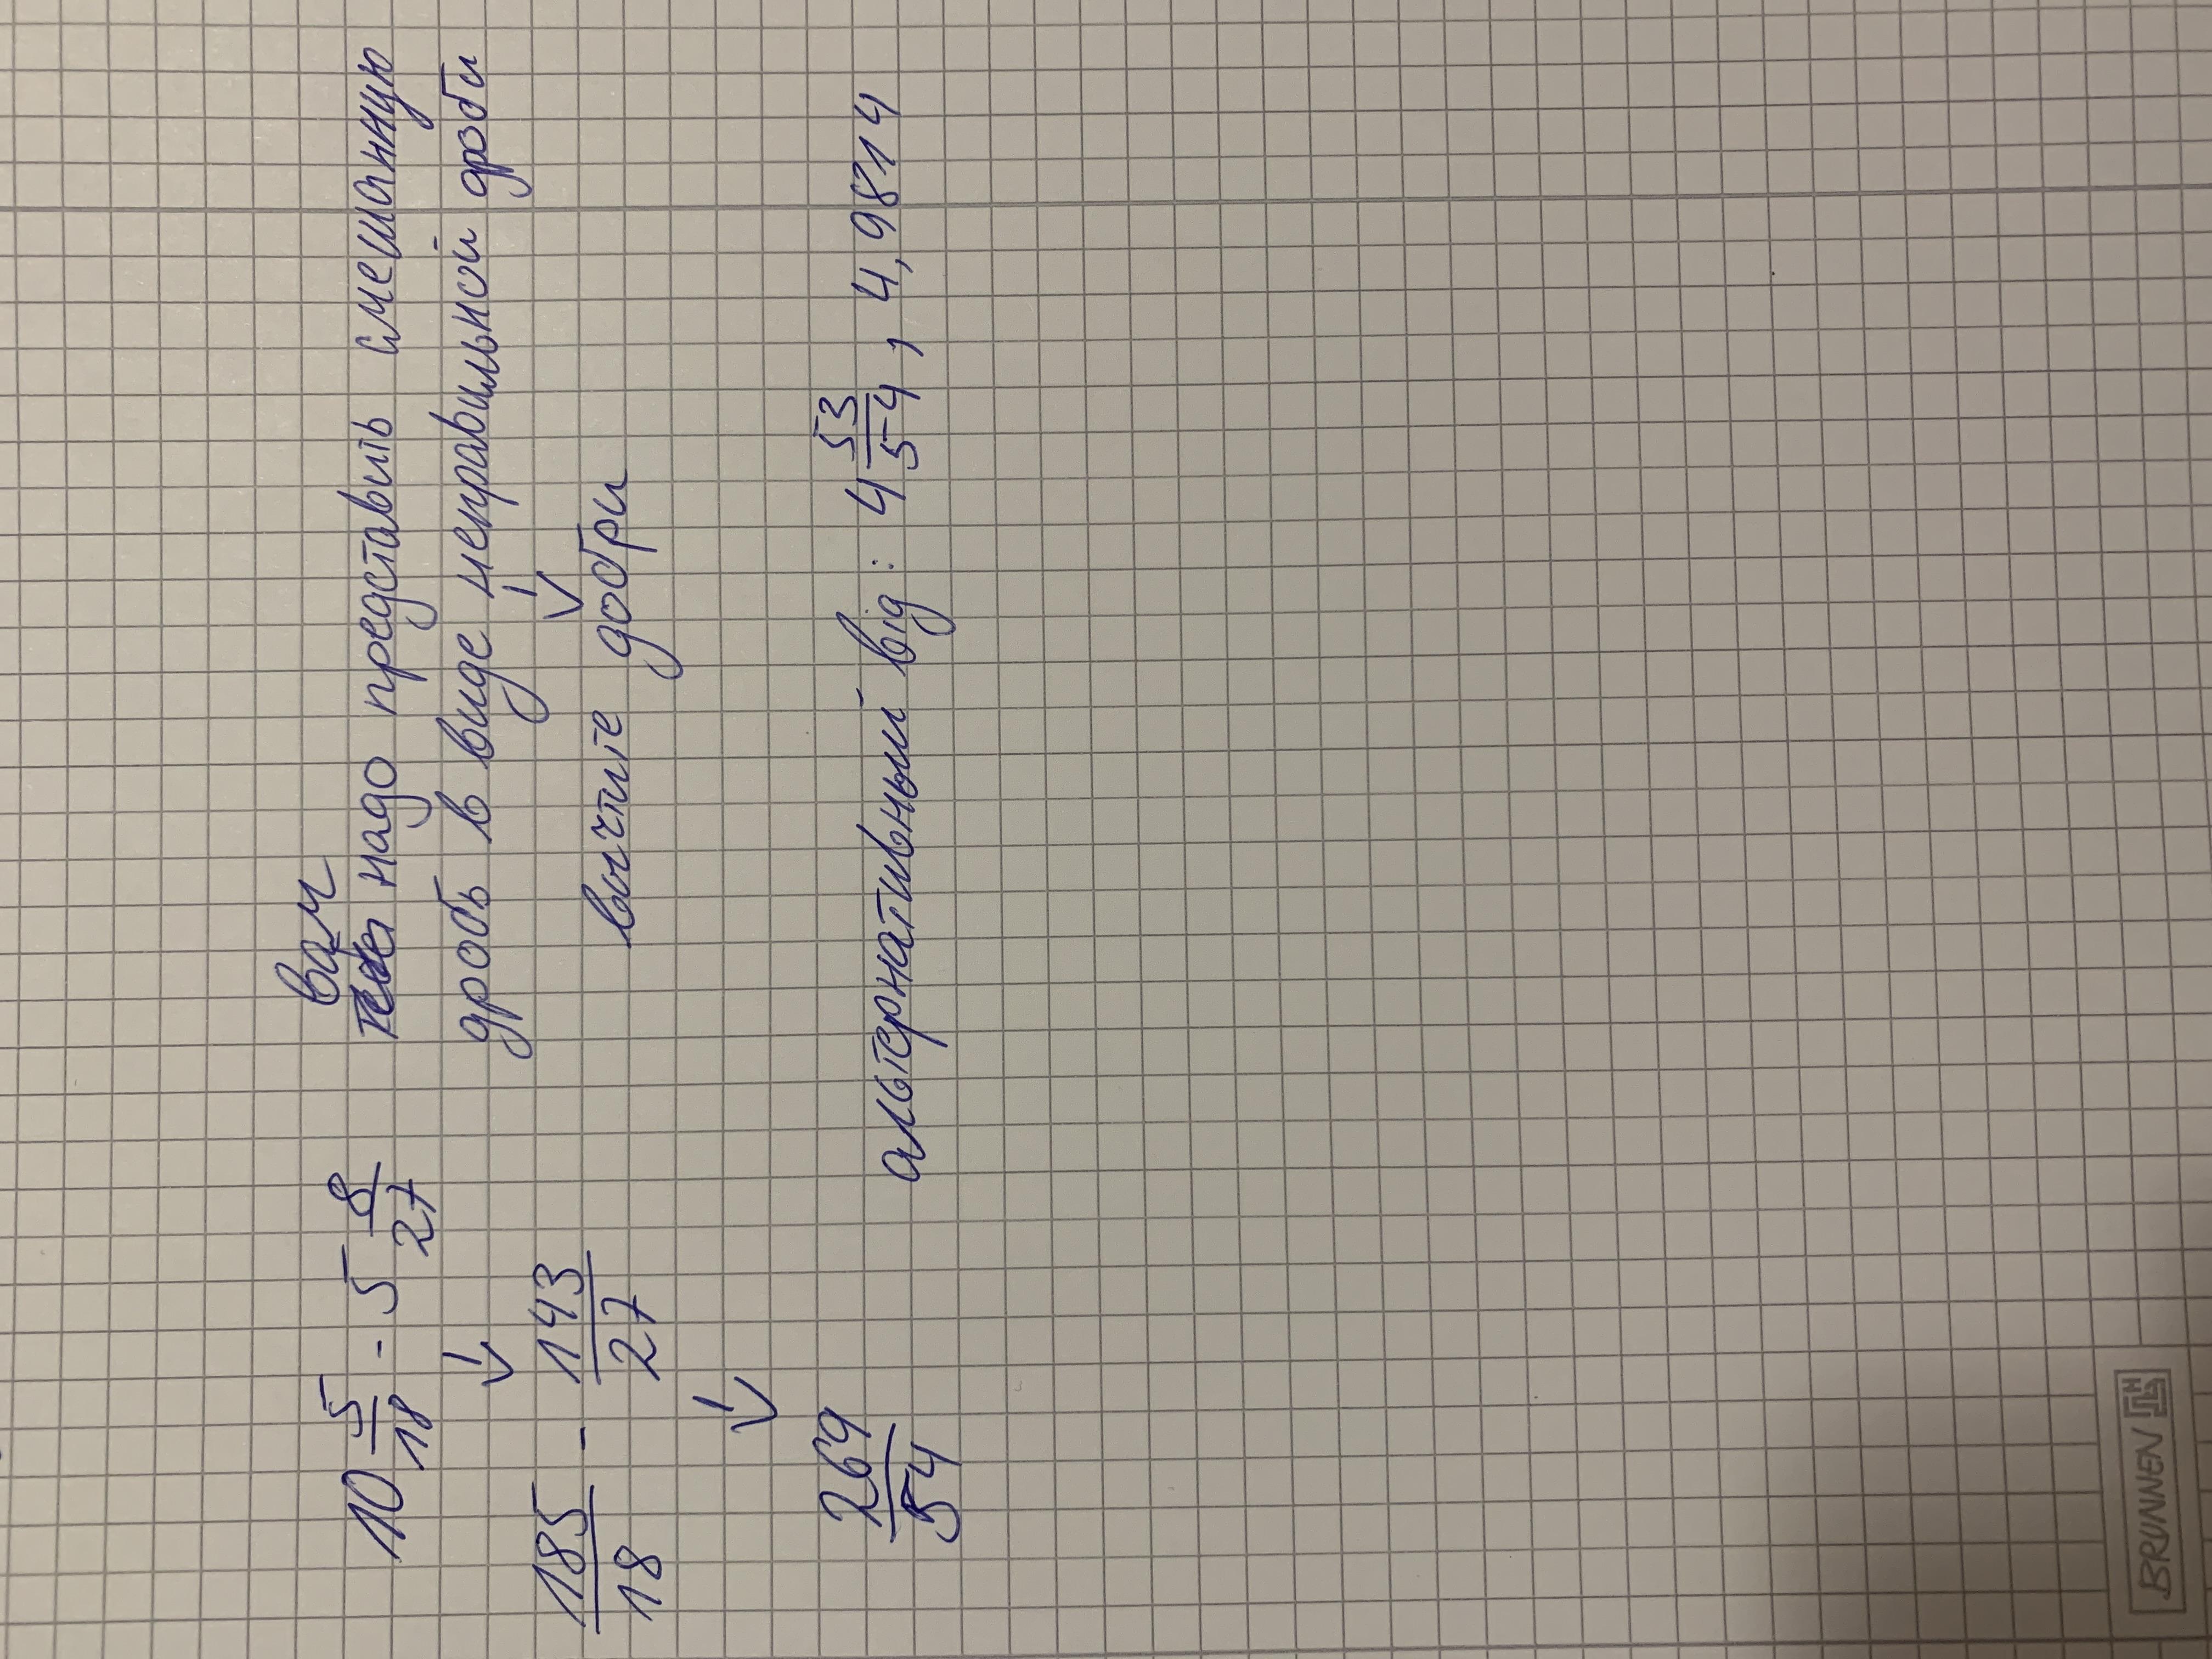 10 5/18 - 5 8/27
вам
надо представить смешанную
дробь в виде неправильной дроби
↓
↓
185/18 - 143/27
вычтите добри
↓
269/54
альтернативный від: 4 53/54, 4,9814
BRUNNEN